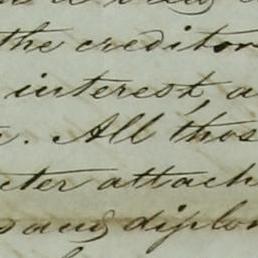 the creditor
interest a
. All thos
cter attach
s and diplom